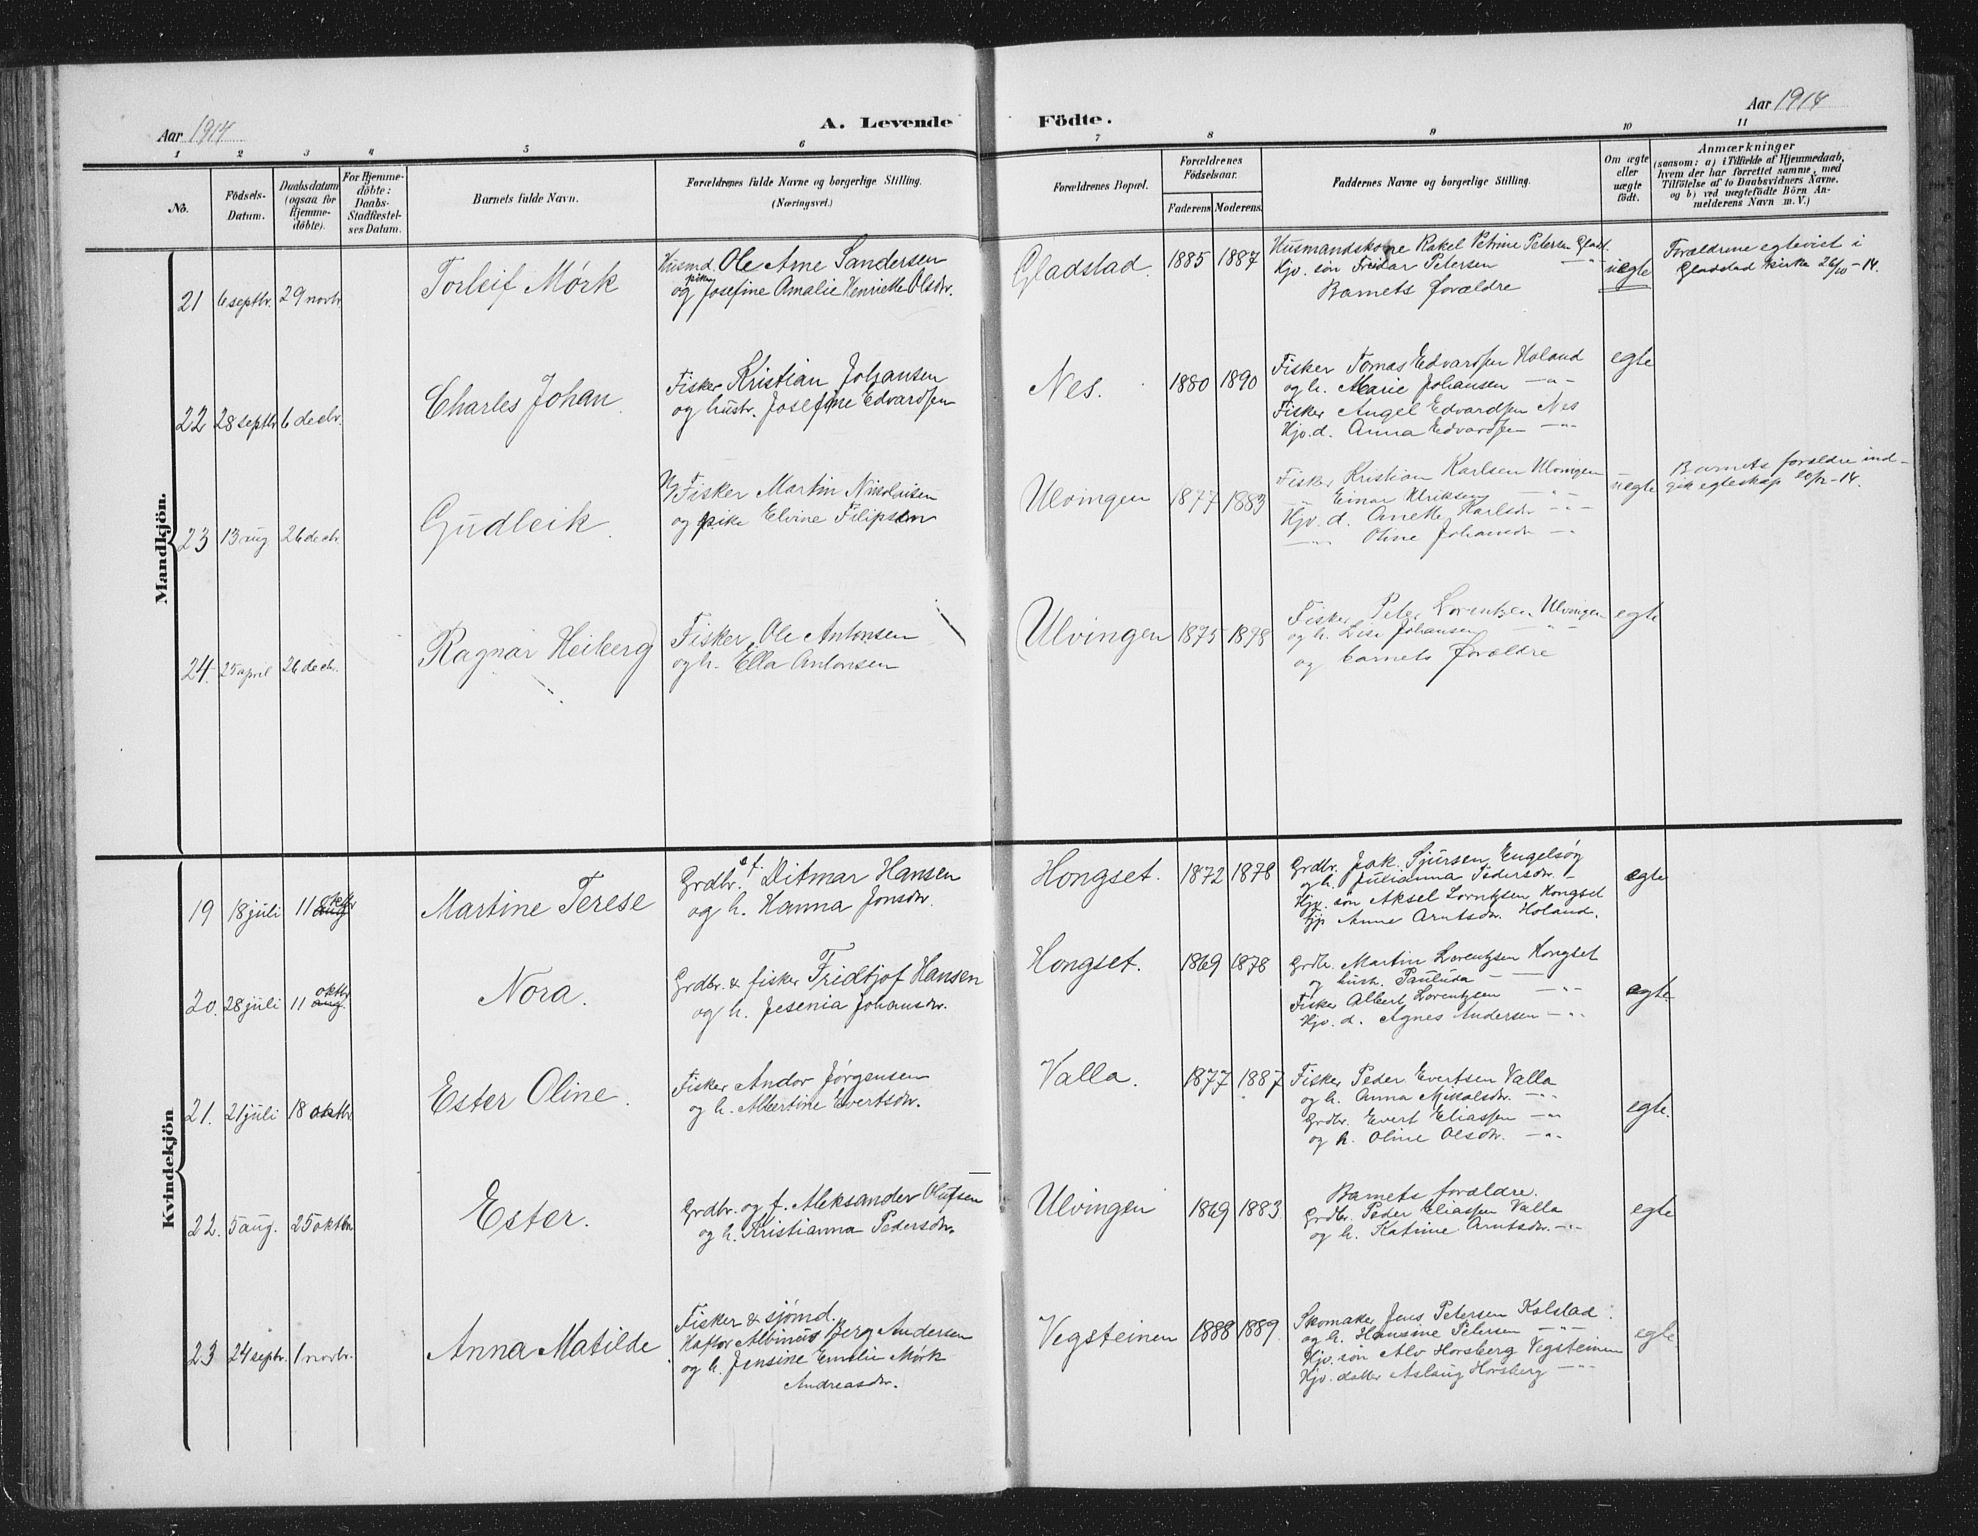 Aar 1914
A. Levende Födte.
Aar 1914
1 2 3 4 5 6 7 8 9 10 11
No.
Födsels-Datum.
Daabsdatum (ogsaa for Hjemmedöbte).
For Hjemmedöbte: Daabs-Stadfæstelses Datum.
Barnets fulde Navn.
Forældrenes fulde Navne og borgerlige Stilling.
(Næringsvei.)
Forældrenes Bopæl.
Forældrenes Födselsaar.
Faderens. Moderens.
Faddernes Navne og borgerlige Stilling.
Om ægte eller uægte födt.
Anmærkninger
(saasom: a) i Tilfælde af Hjemmedaab, hvem der har forrettet samme, med Tilföielse af to Daabsvidners Navne. og b) ved uægtefödte Börn Anmelderens Navn m. V.)
Mandkjön.
21 6 septbr. 29 novbr. Torleif Mörk
Husmd. Ole Arne Sandersen
og pike Josefine Amalie Henriette Olsdtr.
Gladstad. 1885 1887
Husmandskone Rakel Petrine Petersen Gladst.
Hjv. sön Fridar Petersen — " —
Barnets forældre
uegte
Forældrene egteviet i
Gladstad kirke 26/10-14.
22 28 septbr. 6 decbr. Charles Johan
Fisker Kristian Johansen
og hustr. Josefine Edvardsen
Nes. 1880 1890
Fisker Tomas Edvardsen Holand
og h. Marie Johansen — " —
Fisker Angel Edvardsen Nes
Hjv. d. Anna Edvardsen — " —
egte
23 13 aug 26 decbr. Gudleik.
Fisker Martin Nikolaisen
og pike Elvine Filipsen
Ulvingen 1877 1883
Fisker Kristian Karlsen Ulvingen
— " — Einar Ulriksen — " —
Hjv. d. Anette Karlsdtr. — " —
— " — Oline Johansdtr. — " —
uegte
Barnets forældre ind-
gik egteskap -14.
24. 25 april 26 decbr. Ragnar Heiberg
Fisker Ole Antonsen
og h. Ella Antonsen
Ulvingen 1875 1898
Fisker Peter Lorentzen Ulvingen
og h. Lise Johansen — " —
og barnets forældre
egte
Kvindekjön
19 18 juli 11 aug oktbr Martine Terese
Grdbr. & f. Ditmar Hansen
og h. Hanna Jonsdtr.
Hongset. 1872 1878
Grdbr. Jak. Sjursen Engelsöy
og h. Julianna Pedersdtr. —
Hjv. sön Aksel Lorntzen Hongset
Anne Arntsdtr. Holand.
egte
20. 28 juli 11 aug. oktbr Nora.
Grdbr. & fisker Fridtjof Hansen
og h. Jesenia Johansdtr.
Hongset. 1869 1878
Grdbr. Martin Lorentzen Hongset
og hustr. Paulida — — " —
Fisker Albert Lorentzen — " —
Hjv. d. Agnes Andersen — " —
egte
21. 21 juli 18 oktbr Ester Oline.
Fisker Andor Jörgensen
og h. Albertine Evertsdtr.
Valla. 1877 1887
Fisker Peder Evertsen Valla
og h. Anna Mikalsdtr. — " —
Grdbr. Evert Eliassen — " —
og h. Oline Olsdtr. — " —
egte.
22. 5 aug. 25 oktbr Ester.
Grdbr. og f. Aleksander Olufsen
og h. Kristianna Pedersdtr.
Ulvingen 1869 1883
Barnets forældre.
Grdbr. Peder Eliassen Valla
og h. Katrine Arntsdtr. — " —
egte
23 24 septbr. 1 novbr. Anna Matilde
Fisker & sjömd.
Haftor Albinus Berg Andersen
og h. Jensine Emelie Mörk
Andreasdtr.
Vegsteinen 1888 1889.
Skomaker Jens Petersen Kolstad.
og h. Hansine Petersen — " —
Hjv. sön Alv Horsberg Vegsteinen
Hjv. datter Aslaug Horsberg — " —
egte